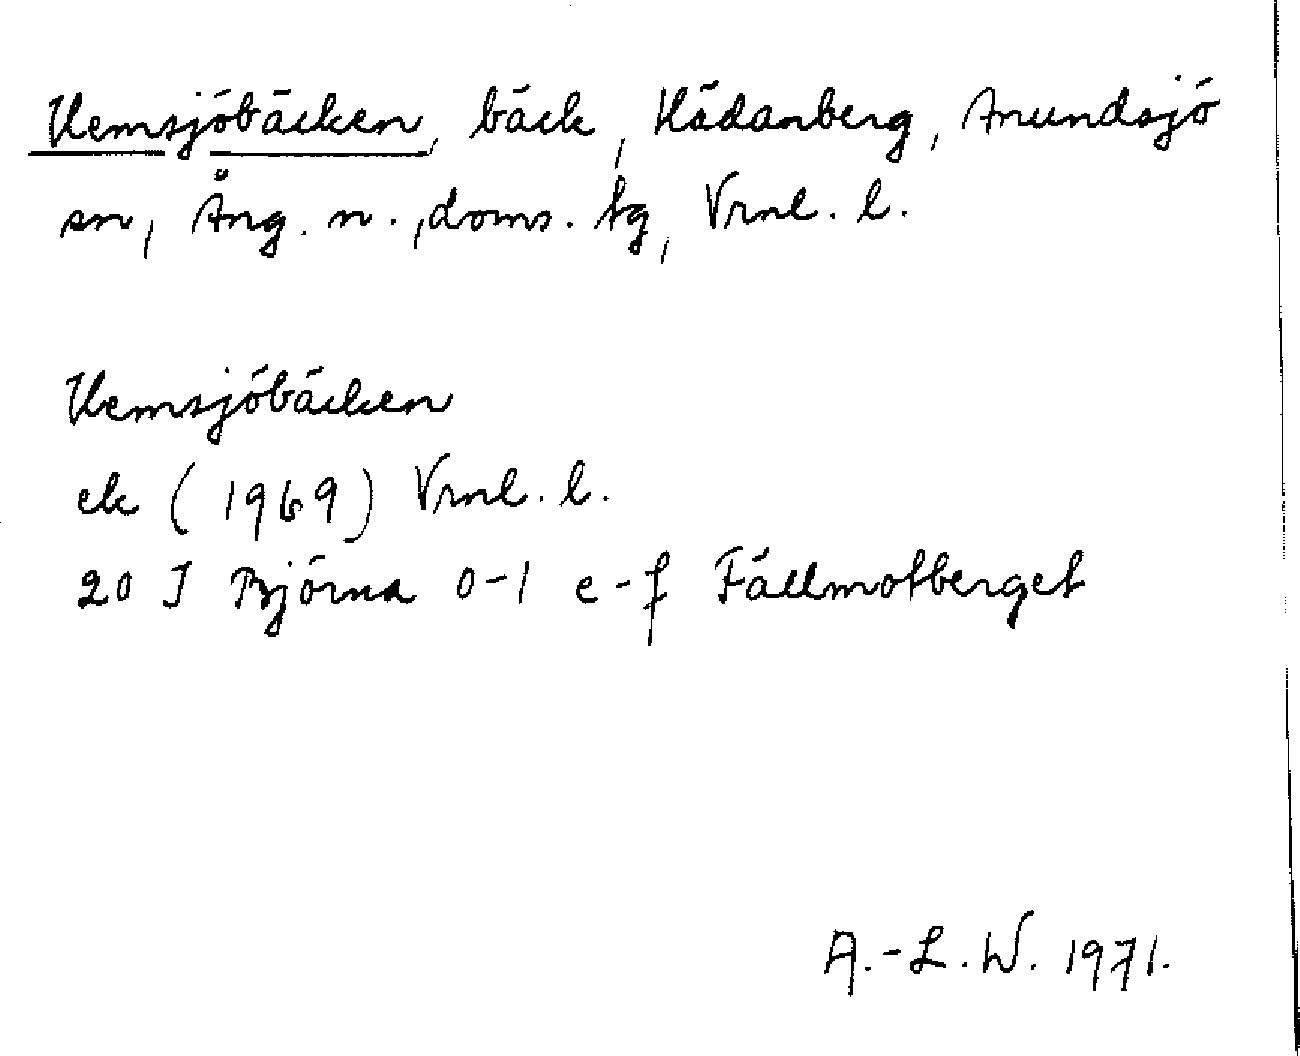 Hemsjöbäcken, bäck, Hädanberg, Anundsjö
sn, Ång. n., doms. tg, Vrnl. l.
Hemsjöbäcken
ek (1969) Vrnl. l.
20 J Björna 0-1 e-f Fällmotberget
A.-L. W. 1971.